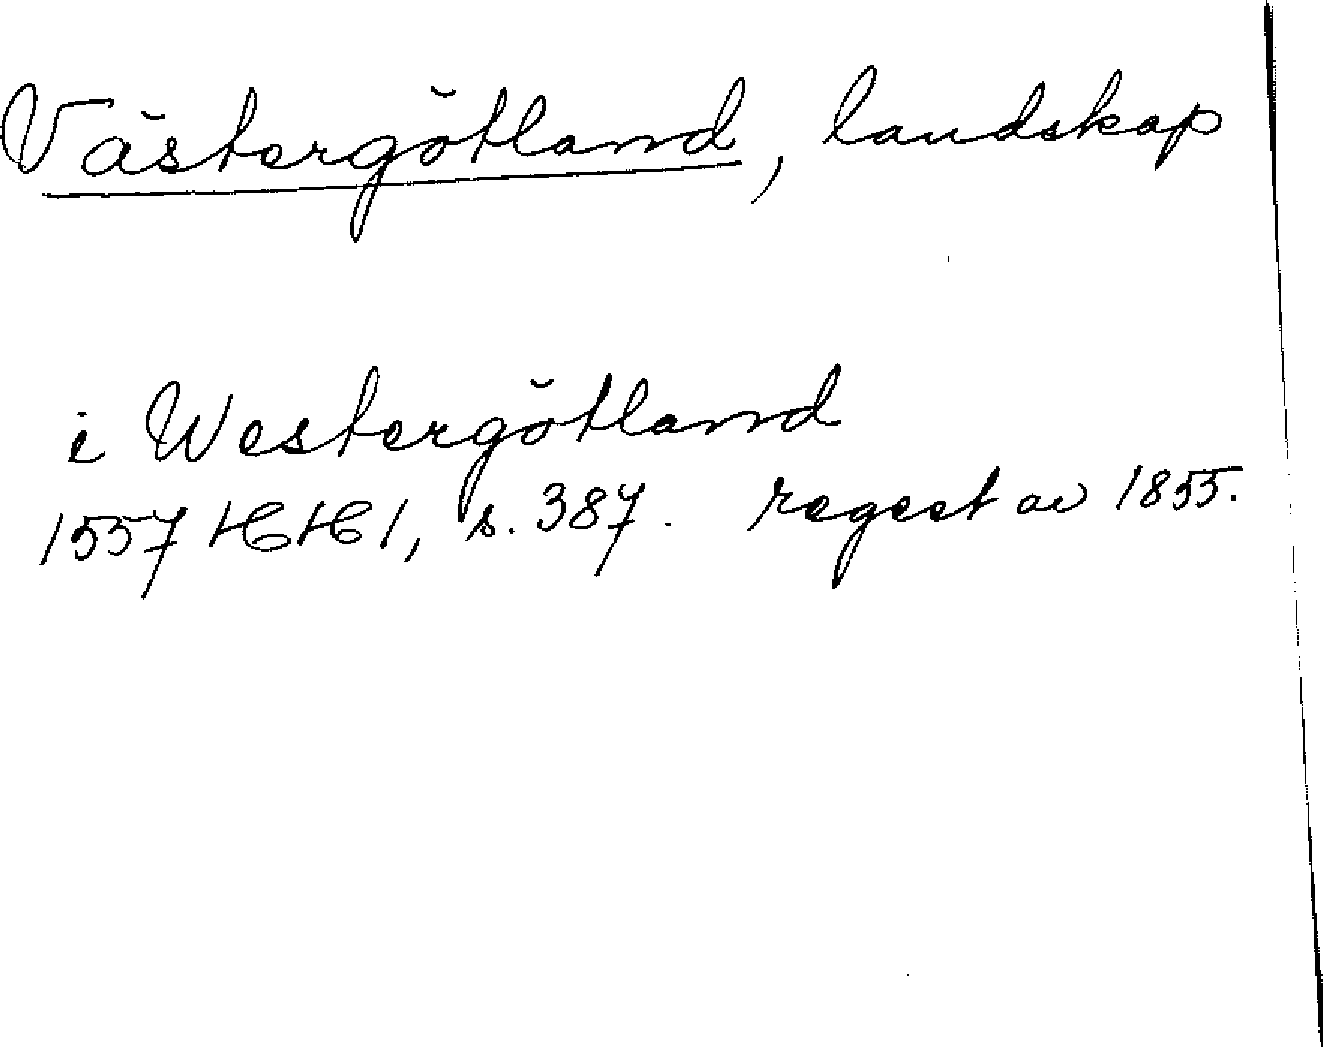 Västergötland, landskap
i Westergötland
1557 HH 1, s. 387. regest av 1855.